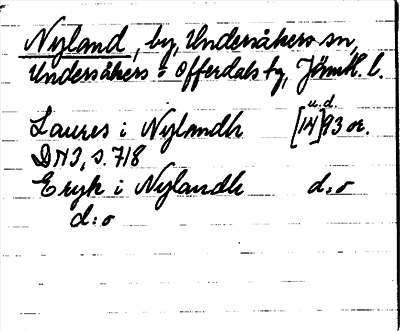 Nyland, by, Undersåkers sn,
Undersåkers o Offerdals tg, Jämtl. l.
u. d.
Laures i Nylandh [14]93 or.
DN3, s. 718
Eryk i Nylandh d:o
d:o